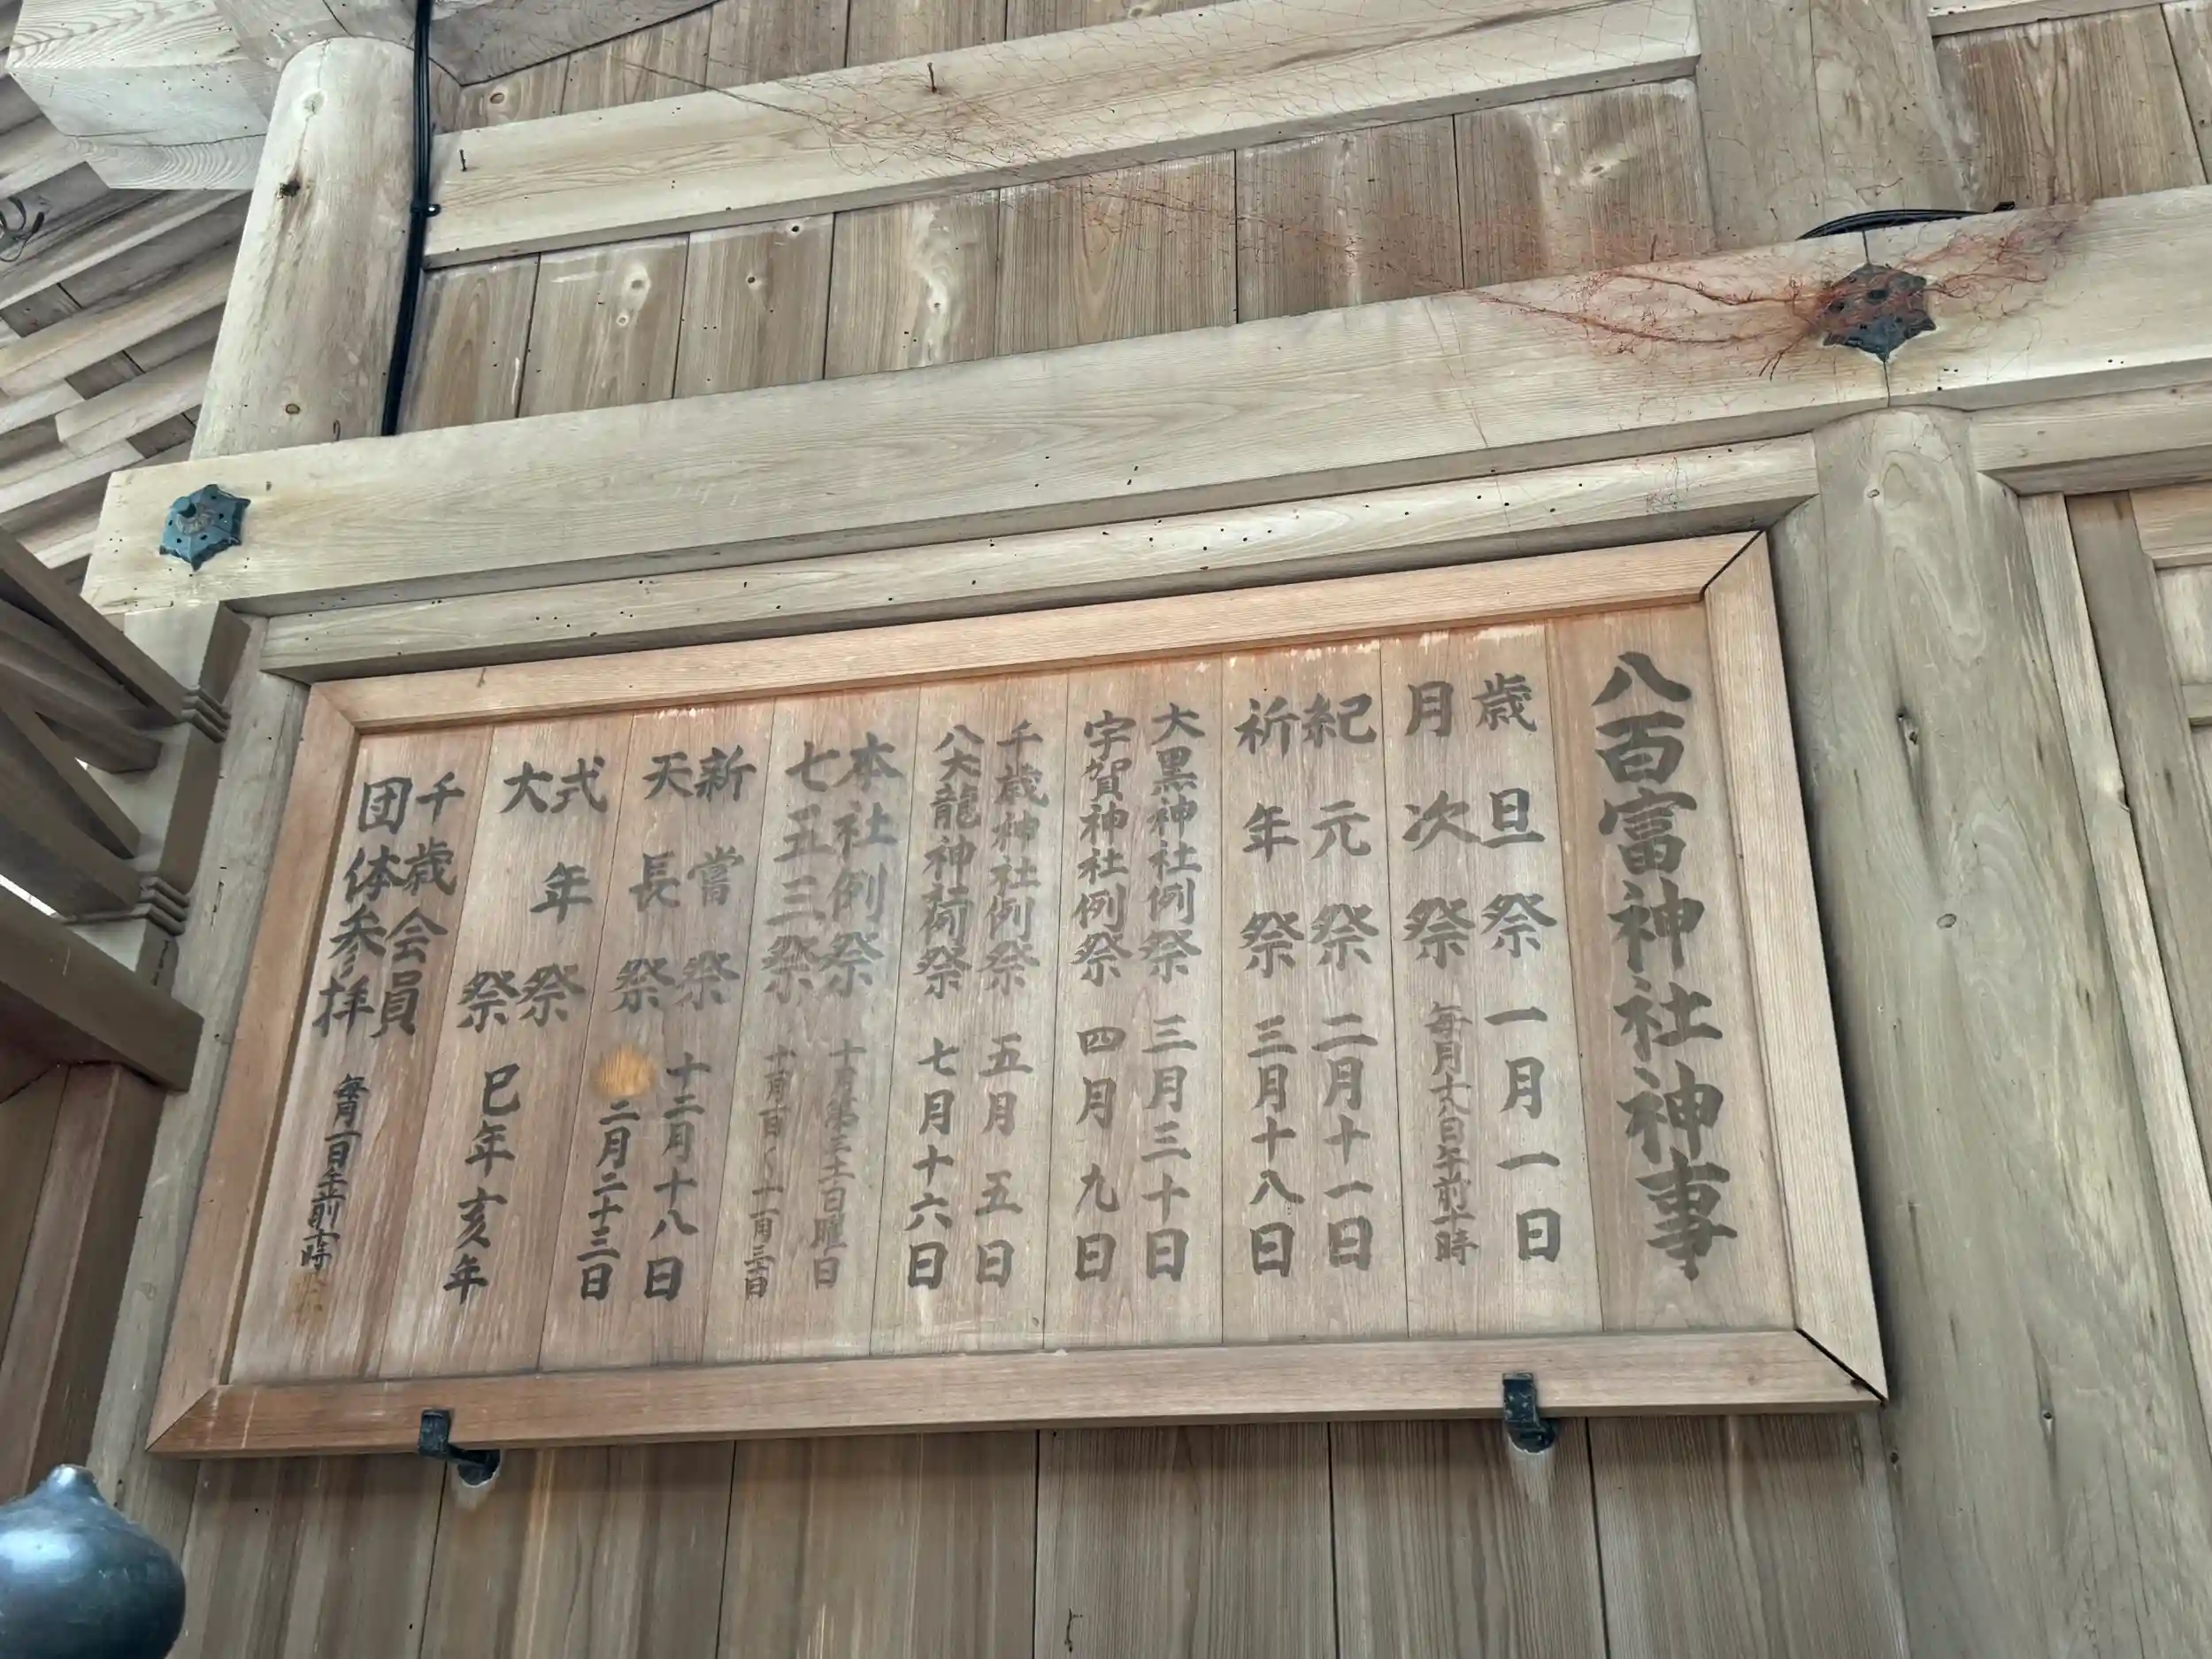 八百富神社神事
歳旦祭 一月一日
月次祭 毎月十八日午前十時
紀元祭 二月十一日
祈年祭 三月十八日
大黒神社例祭 三月三十日
宇賀神社例祭 四月九日
千歳神社例祭 五月五日
八大龍神社例祭 七月十六日
本社例祭 十月第三土日曜日
七五三祭 十月百〜十一月三十日
新嘗祭 十二月十八日
天長祭 二月二十三日
式年祭
大祭 巳年亥年
千歳会員
団体参拝 毎月一日午前十時